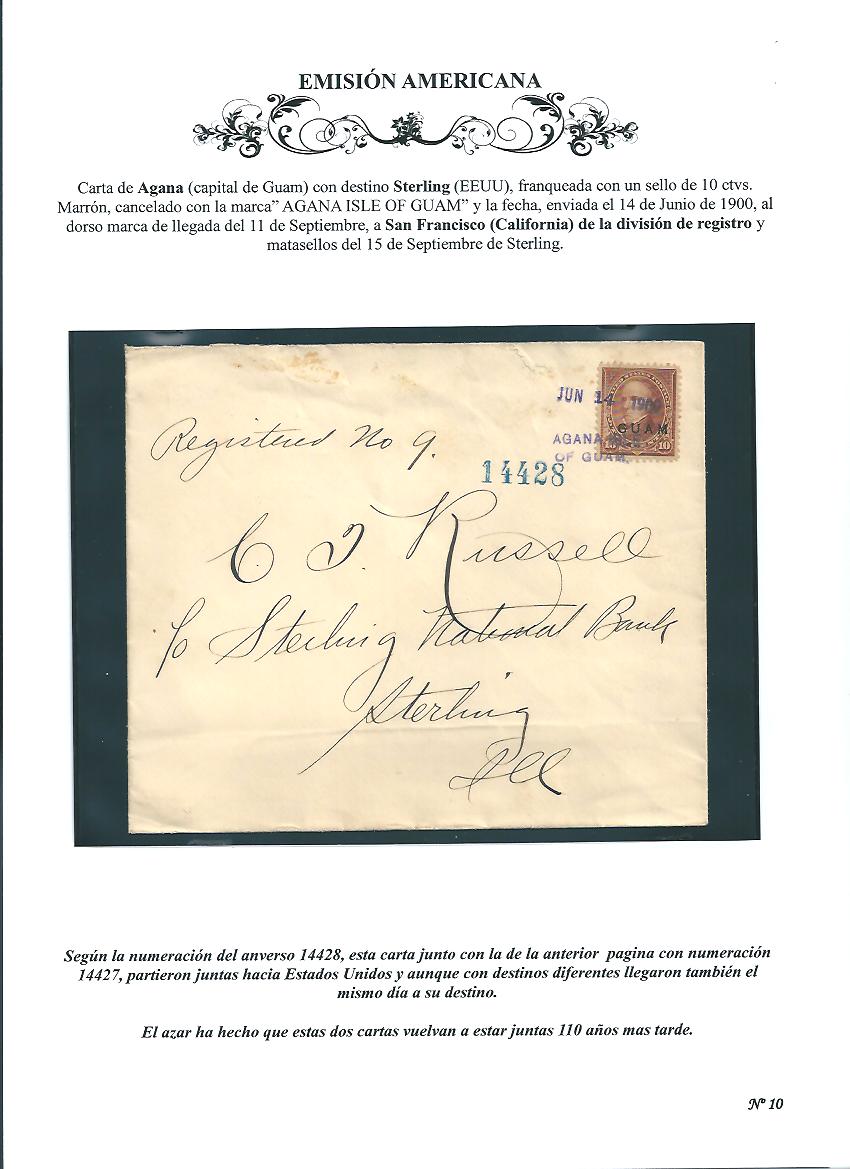 EMISIÓN AMERICANA
Carta de Agana (capital de Guam) con destino Sterling (EEUU), franqueada con un sello de 10 ctvs.
Marrón, cancelado con la marca” AGANA ISLE OF GUAM” y la fecha, enviada el 14 de Junio de 1900, al
dorso marca de llegada del 11 de Septiembre, a San Francisco (California) de la división de registro y
matasellos del 15 de Septiembre de Sterling.
JUN 14 1900
GUAM
10
AGANA ISLE
OF GUAM.
Registered No 9.
14428
C. T. Russell
c/o Sterling National Bank
Sterling
Ill
Según la numeración del anverso 14428, esta carta junto con la de la anterior pagina con numeración
14427, partieron juntas hacia Estados Unidos y aunque con destinos diferentes llegaron también el
mismo día a su destino.
El azar ha hecho que estas dos cartas vuelvan a estar juntas 110 años mas tarde.
Nº 10